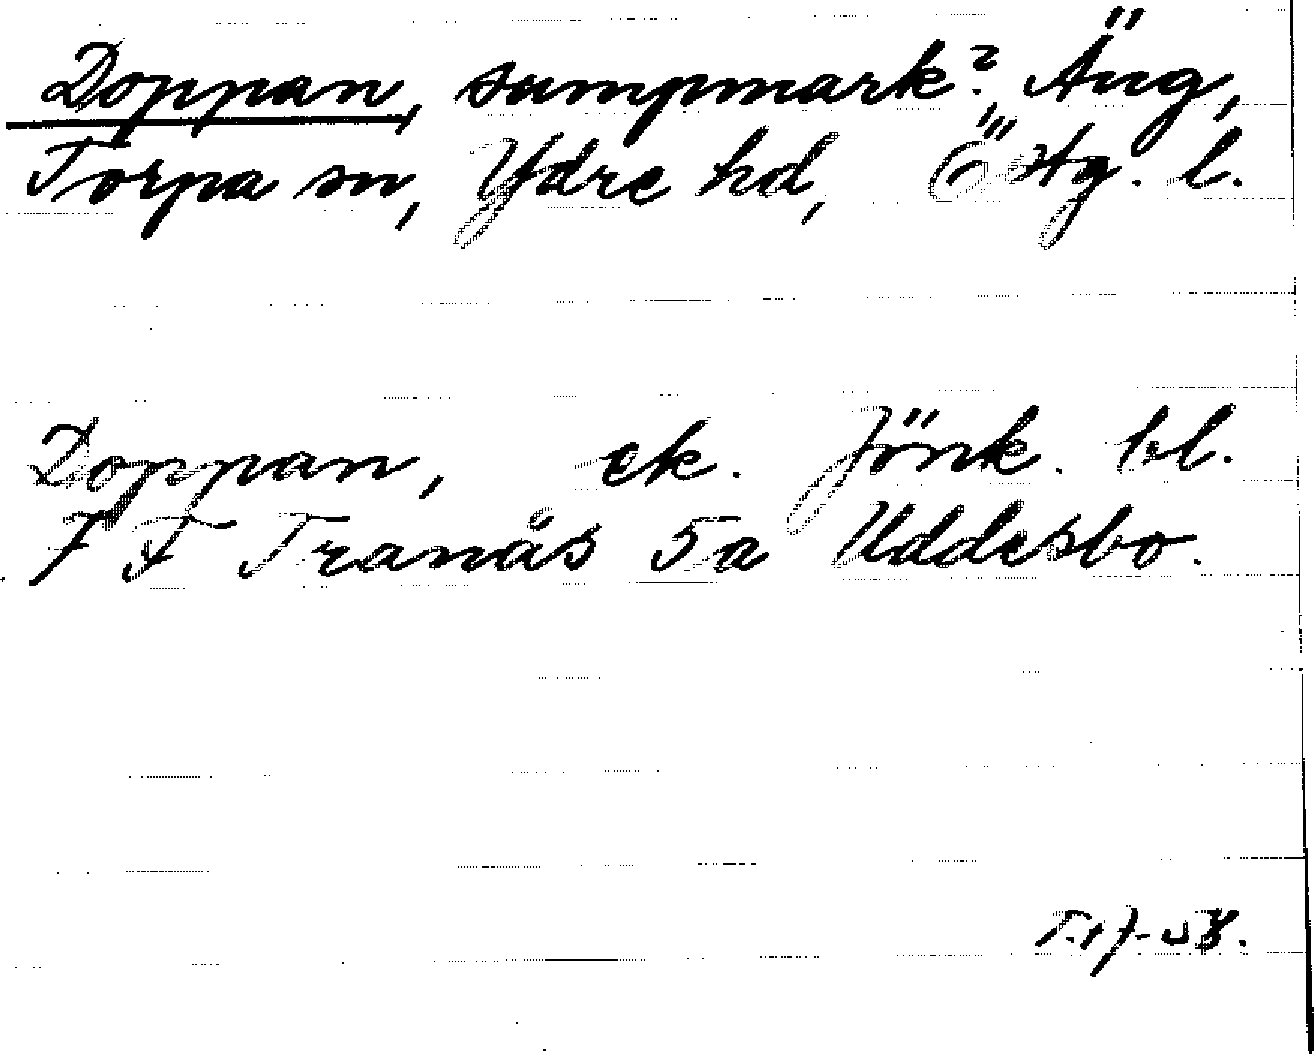 Doppan, sumpmark? Äng,
Torpa sn, Ydre hd, Östg. l.
Doppan, ek. Jönk. bl.
7 F Tranås 5a Uddesbo.